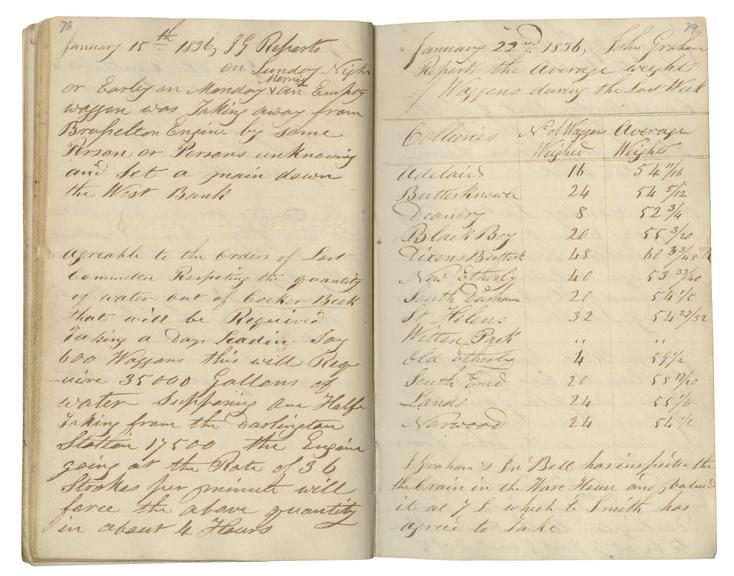 78
January 15th 1836, JG Reports
on Sunday Night
or Earley on Monday Morng an Emptey
waggon was Taking away from
Brusselton Engine by some
Person or Persons unknowing
and Set a main down
the West Bank
agreable to the orders of Last
Committee Respeting the quantity
of water out of Cocker Beck
that will be Required
Taking a Days leading Say
600 Waggons this will Req
-uire 35000 Gallons of
water Supposing one Halfe
Taking from the Darlington
Station 17500 the Engine
going at the Rate of 36
Strokes per minute will
force the above quantity
in about 4 Hours
79
January 22nd 1836, John Graham
Reports the Average weights
of Waggons during the Last Week
Colleries No of Waggons Weighed Average Weights
Adelaid 16 54 11/16
Butterknowle 24 54 5/12
Deanery 8 52 3/4
Black Boy 20 55 3/20
Dixons Butterk 48 60 33/48
New Etherly 40 53 33/40
South Durham 20 54 1/5
St Helens 32 54 27/32
Witton Park " "
Old Etherley 4 54 1/2
South End 20 55 17/20
Lands 24 55
Norwood 24 54
J Graham & Jn Bell has inspected the
the Grain in the Ware House and valued
it at 7£ which E Smith has
agreed to Take